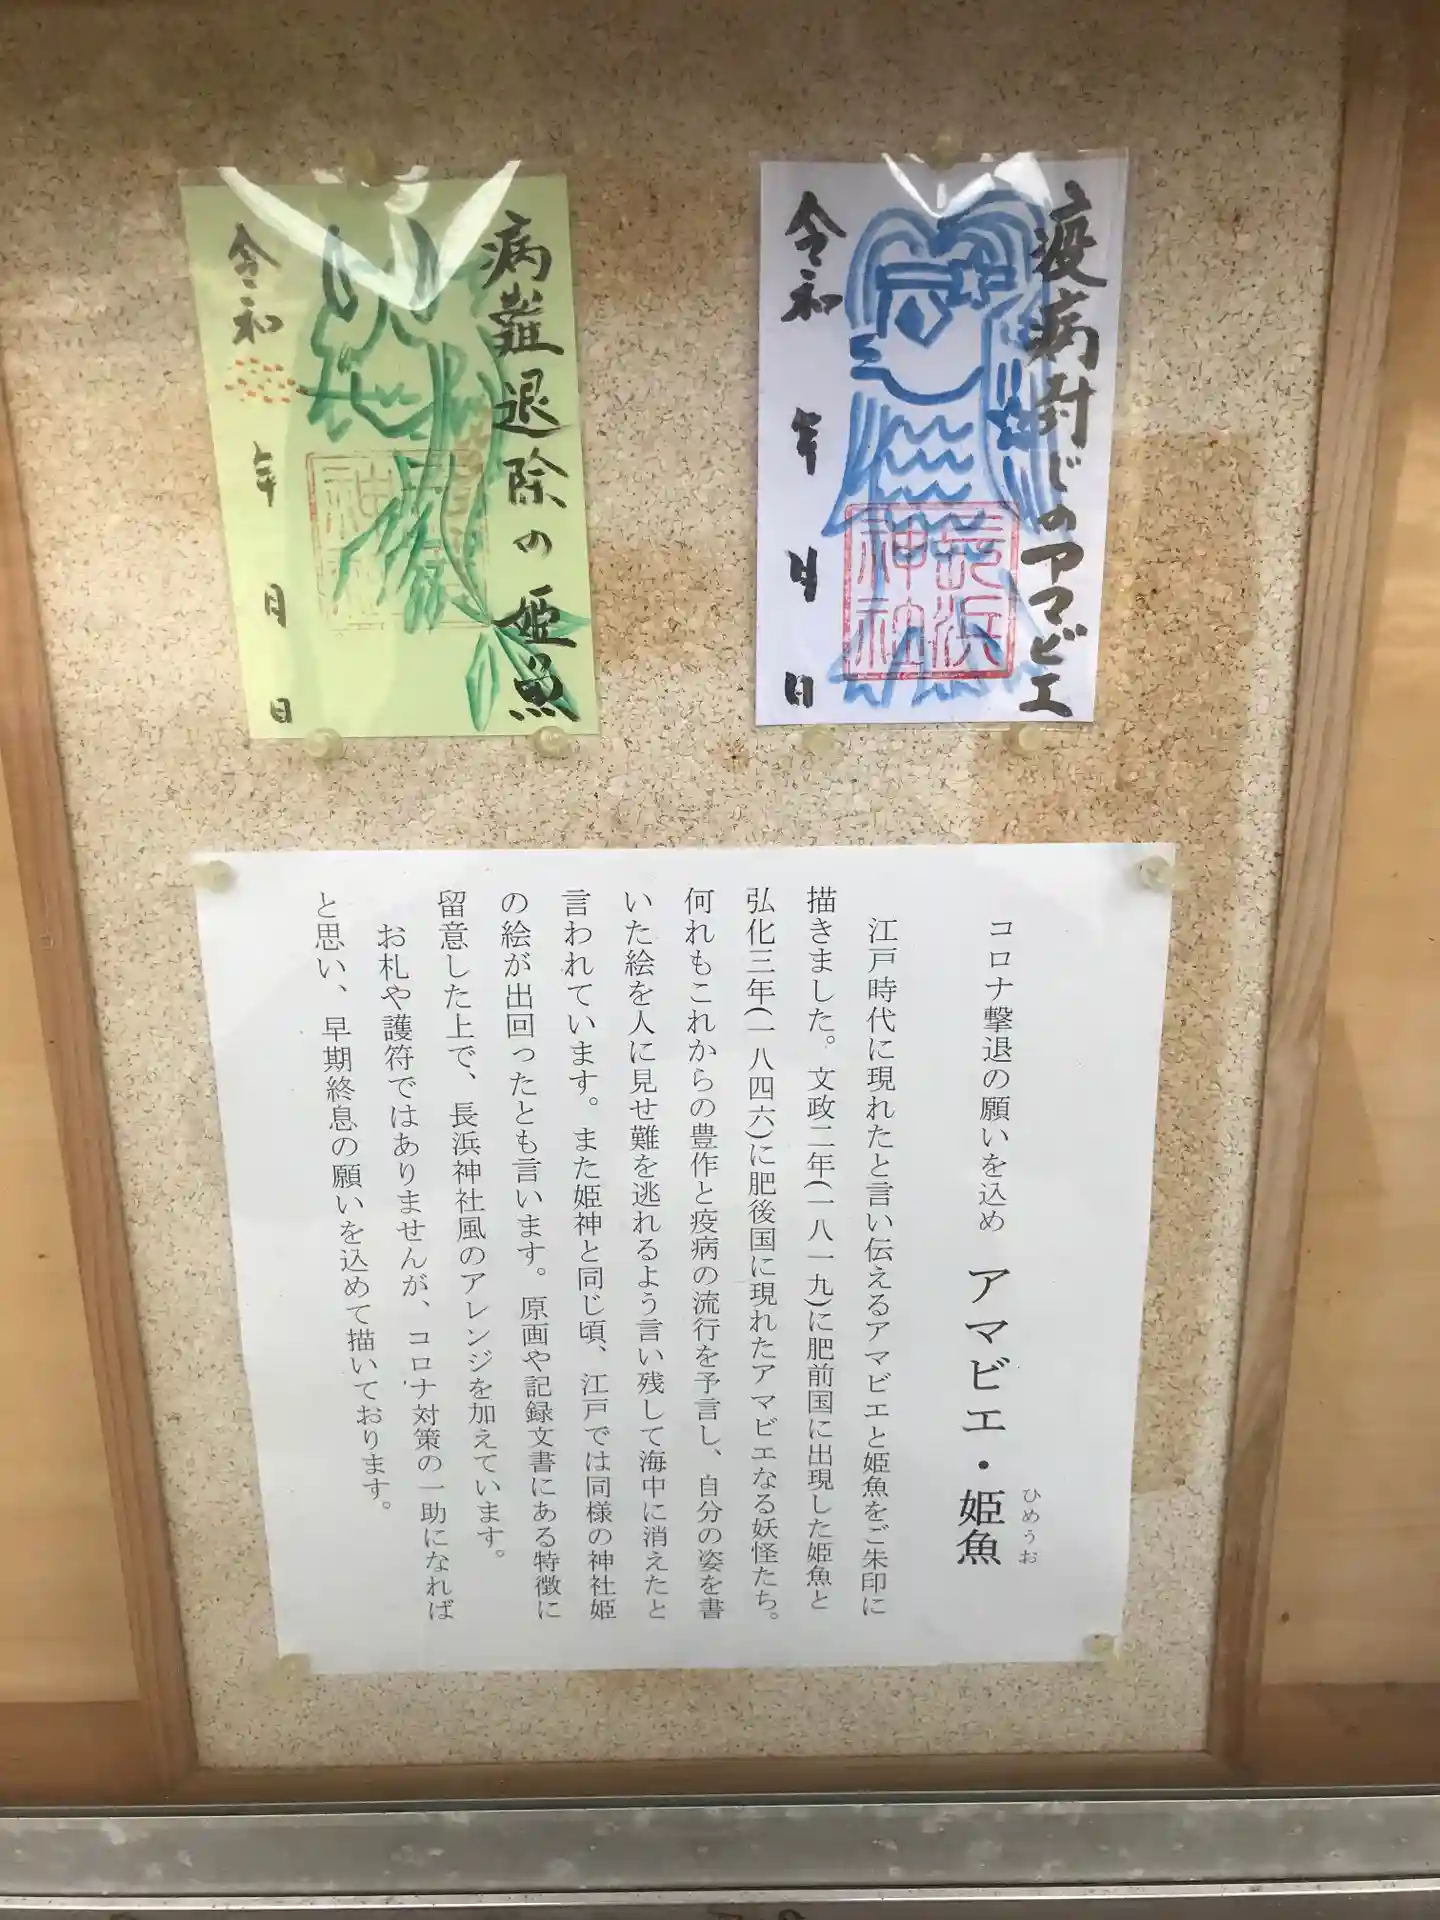 疫病封じのアマビエ
令和 年 月 日
長浜
神社
病難退除の姫魚
令和 年 月 日
コロナ撃退の願いを込め アマビエ・姫魚
ひめうお
江戸時代に現れたと言い伝えるアマビエと姫魚をご朱印に
描きました。文政二年(一八一九)に肥前国に出現した姫魚と
弘化三年(一八四六)に肥後国に現れたアマビエなる妖怪たち。
何れもこれからの豊作と疫病の流行を予言し、自分の姿を書
いた絵を人に見せ難を逃れるよう言い残して海中に消えたと
言われています。また姫神と同じ頃、江戸では同様の神社姫
の絵が出回ったとも言います。原画や記録文書にある特徴に
留意した上で、長浜神社風のアレンジを加えています。
お札や護符ではありませんが、コロナ対策の一助になれば
と思い、早期終息の願いを込めて描いております。